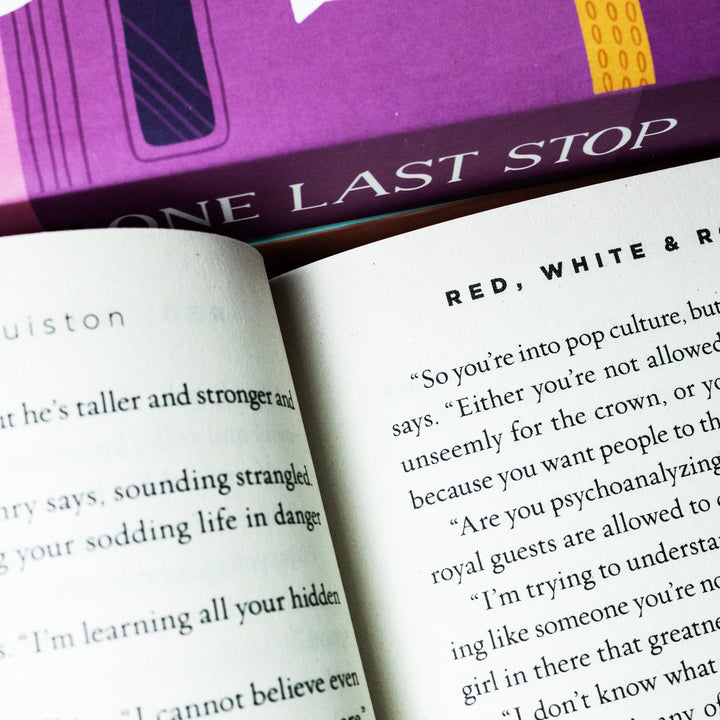 ONE LAST STOP
uiston
he's taller and stronger and
says, sounding strangled.
your sodding life in danger
"I'm learning all your hidden
"I cannot believe even
RED, WHITE & R
"So you're into pop culture, but
says. "Either you're not allowed
unseemly for the crown, or yo
because you want people to th
"Are you psychoanalyzing
royal guests are allowed to
"I'm trying to understa
ing like someone you're no
girl in there that greatne
"I don't know what